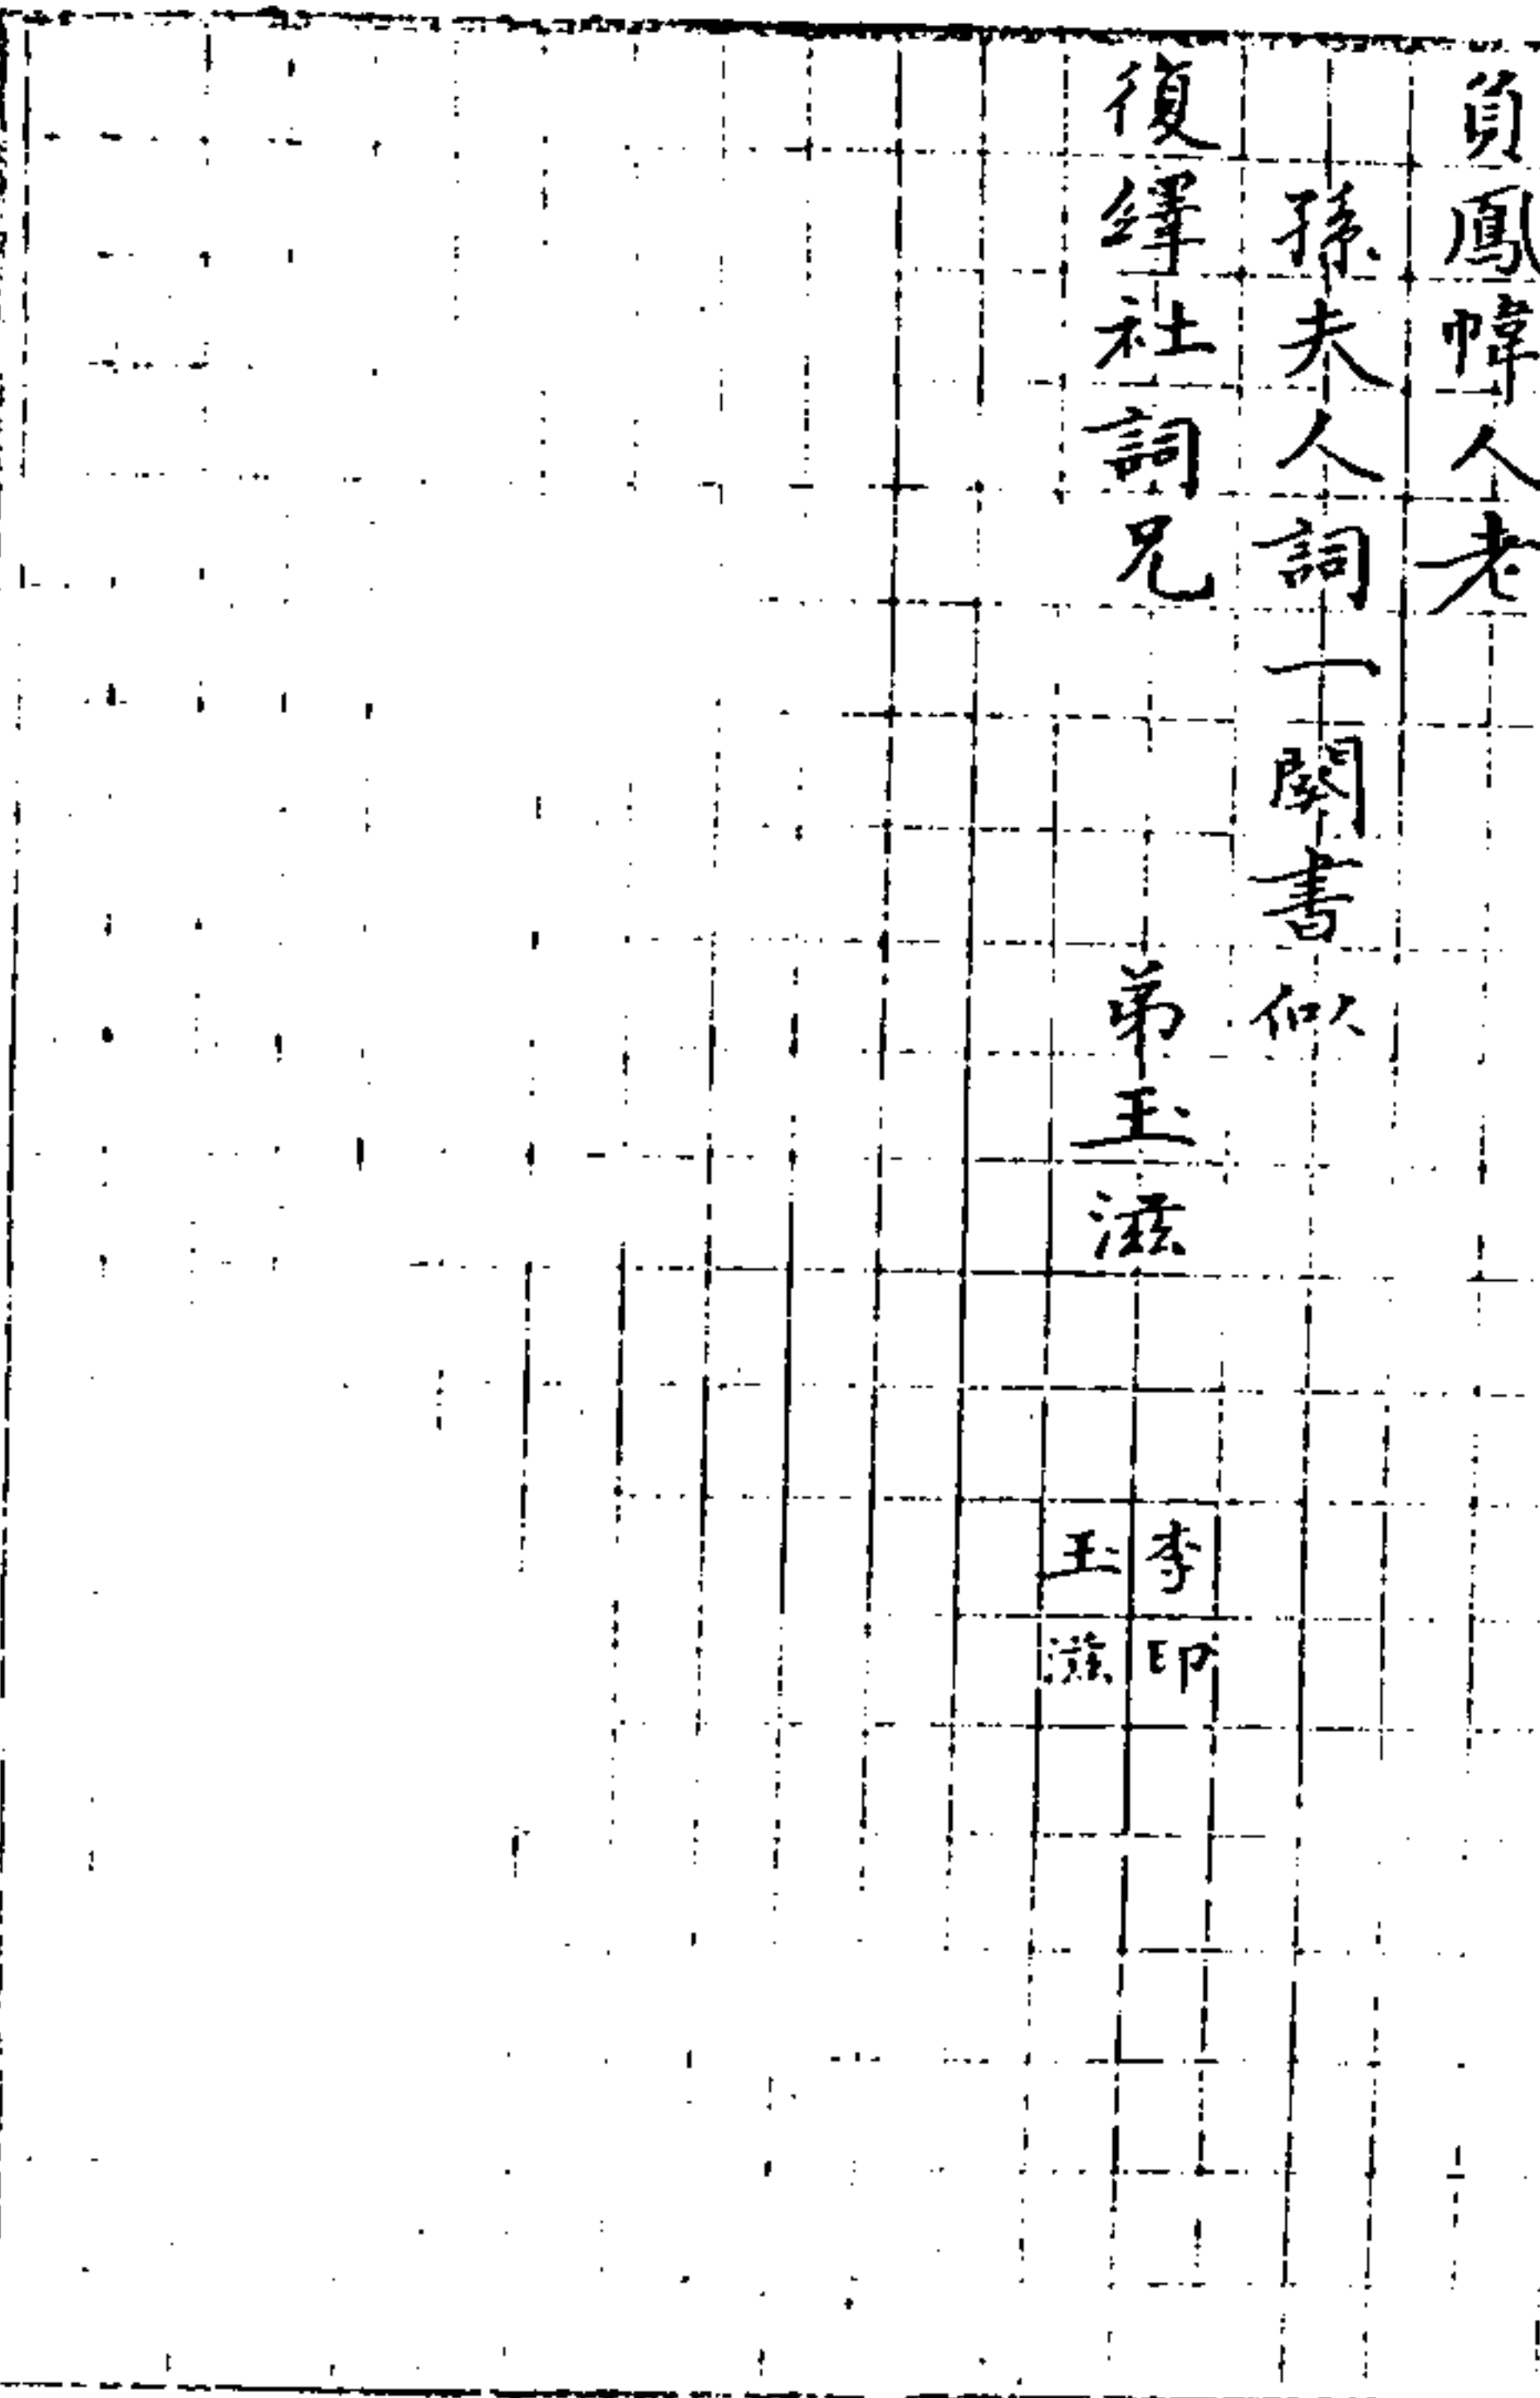 負鳳幃人老
孫夫人詞一闋書似
復繹社詞兄
弟玉滋
李印
玉滋